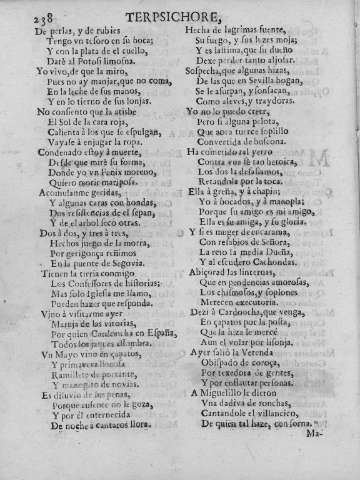 238 TERPSICHORE,
De perlas, y de rubies
Tengo vn tesoro en su boca;
Y con la plata de el cuello,
Darè al Potosí limosna.
Yo vivo, de que la miro,
Pues no ay manjar, que no coma,
En la leche de sus manos,
Y en lo tierno de sus lonjas.
No consiento que la atisbe
El Sol de la cara roja,
Calienta à los que se espulgan,
Vayase à enjugar la ropa.
Condenado estoy à muerte,
Desde que mirè su forma,
Donde yo vn Fenix moreno,
Quiero morir mariposa.
Acomulanme heridas,
Y algunas caras con hondas,
Dos residencias de el sepan,
Y de el arbol seco otras.
Dos à dos, y tres à tres,
Hechos juego de la morra,
Por gerigonça reñimos
En la puente de Segovia.
Tienen la tirria conmigo
Los Confessores de historias;
Mas solo Iglesia me llamo,
Pueden hazer que responda.
Vino à visitarme ayer
Maruja de las vitorias,
Por quien en España,
Todos los jaques
Vn Mayo vino en çapatos,
Y primavera
Ramillete de portante,
Y manojito de novias.
Es diluvio de las penas,
Porque ausente no le goza,
Y por èl enternecida
De noche à cantaros llora.
Hecha de lagrimas fuente,
Su fuego, y sus luzes moja;
Y es lastima, que su dueño
Dexe perder tanto aljofar.
Sospecha, que algunas hizas,
De las que en Sevilla bogan,
Se le asurpan, y sonsacan,
Como aleves, y traydoras.
Yo no lo puedo creer,
Pero si alguna pelota,
Que aora turrce soplillo
Convertida de buscona.
Ha cometido tal yerro
Contra vna lè tan heroica,
Los dos la desafiamos,
Retandola por la toca.
Ella à greña, y à chapin;
Yo à bocados, y à manopla;
Porque su amigo es mi amigo,
Ella es su amiga, y su gloria.
Y si es muger de encarama,
Con resabios de Señora,
La reto la media Dueña,
Y al escudero Cachondas.
Abiçorad las linternas,
Que en pendencias amorosas,
Los chismosos, y soplones
Merecen executoria.
Dezi à Cardoncha, que venga,
En çapatos por la posta,
Que la hiza le mercè
Aun el volar por lisonja.
Ayer saliò la Verenda
Obispada de coroça,
Por texedora de gentes,
Y por enflautar personas.
A Miguelillo le dieron
Vna dadiva de ronchas,
Cantandole el villancico,
De quien tal haze, con sorna.
Ma-